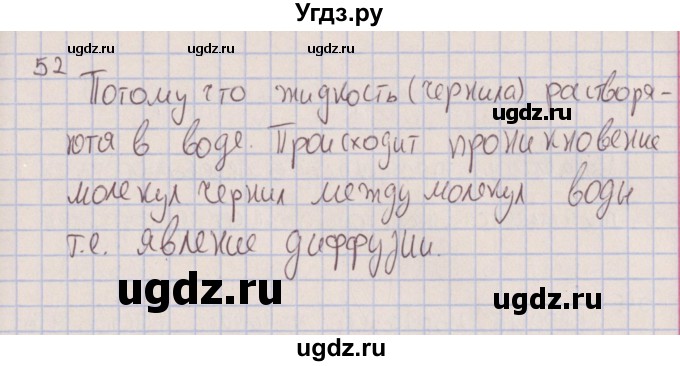 Угдз.ру
ugdz.ru ugdz.ru ugdz.ru
52
Потому что жидкость (чернила) растворя-
ются в воде. Происходит проникновение
молекул чернил между молекул воды
т.е. явление диффузии.
ugdz.ru ugdz.ru
ugdz.ru